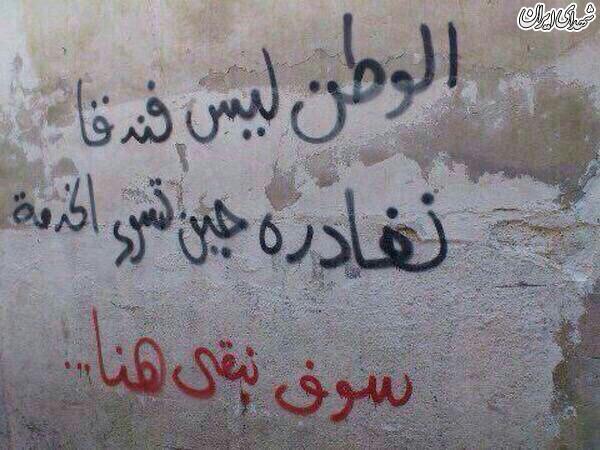 شهدای ایران
الوطن ليس فندقا
نغادره حين تسوء الخدمة
سوف نبقى هنا...